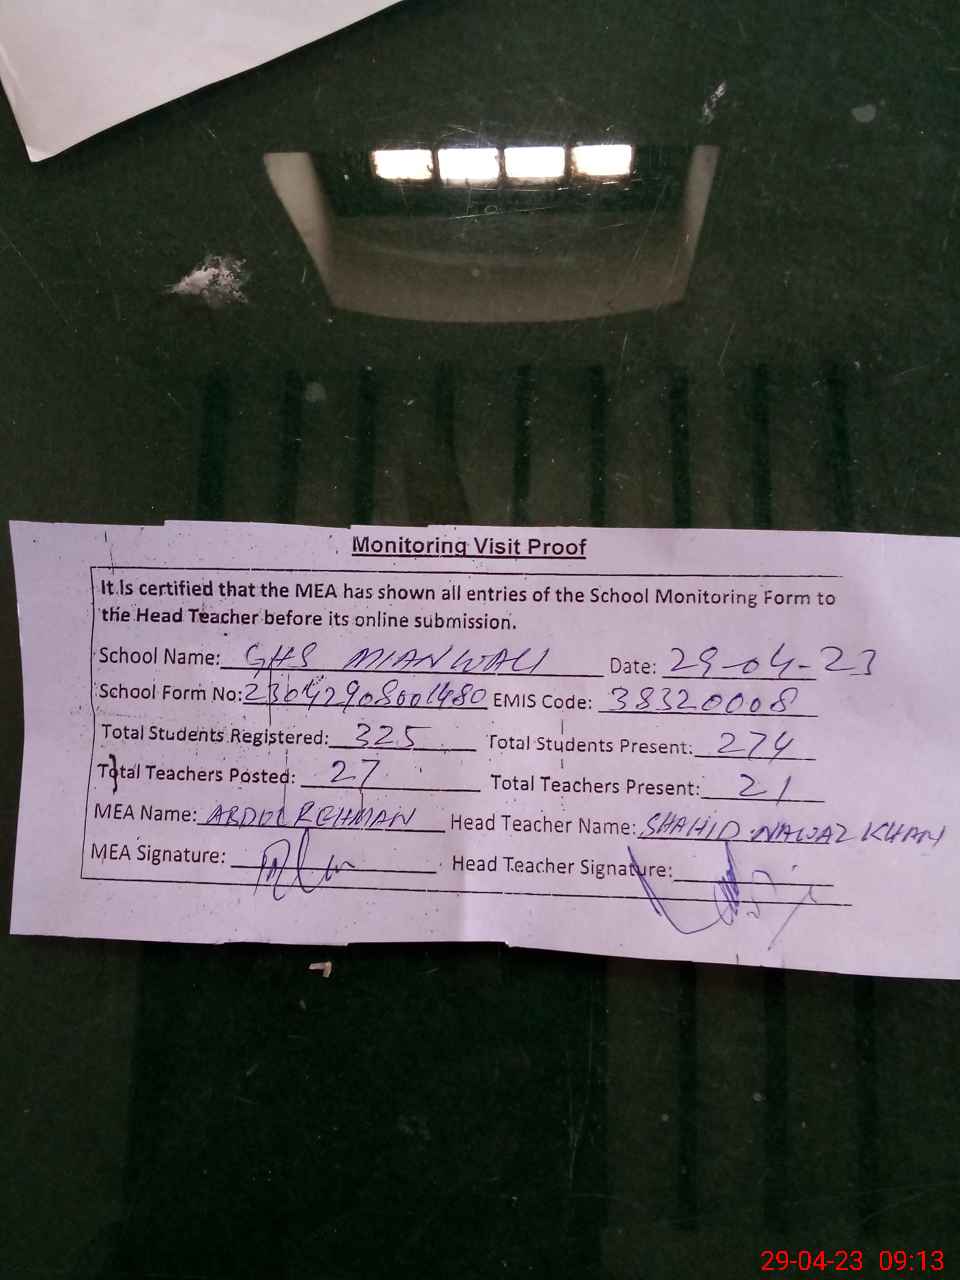 Monitoring Visit Proof
It is certified that the MEA has shown all entries of the School Monitoring Form to
the Head Teacher before its online submission.
School Name: GHS MIANWALI Date: 29-04-23
School Form No: 23042908001480 EMIS Code: 38320008
Total Students Registered: 325 Total Students Present: 274
Total Teachers Posted: 27 Total Teachers Present: 21
MEA Name: ABDUL REHMAN Head Teacher Name: SHAHID NAWAZ KHAN
MEA Signature: Head Teacher Signature:
29-04-23 09:13